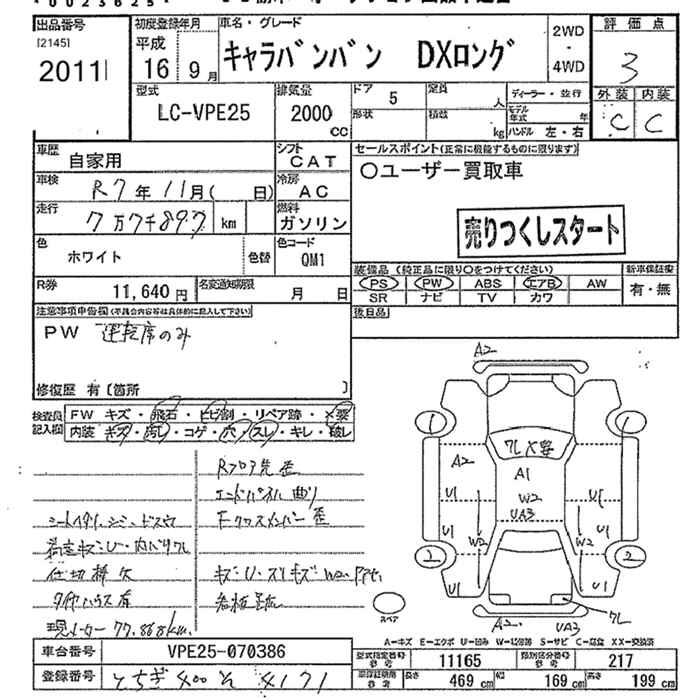 出品番号
[2145]
2011
初度登録年月
平成
16 9月
車名・グレード
キャラバンバン DXロング
2WD
・
4WD
評価点
3
外装 内装
C C
型式
LC-VPE25
排気量
2000
CC
ドア 5
定員 人
形状
積載 kg
ディーラー・並行
モデル年式 年
ハンドル 左・右
車歴 自家用
シフト CAT
車検 R7年11月( 日)
冷房 AC
走行 7万7千897 km
燃料 ガソリン
色 ホワイト
色替
色コード QM1
R券 11,640円
名変通知期限 月 日
セールスポイント(正常に機能するものに限ります)
○ユーザー買取車
売りつくしスタート
装備品 (純正品に限り○をつけてください)
新車保証書
PS PW ABS エアB AW
有・無
SR ナビ TV カワ
後日品
注意事項申告欄(不具合内容等は具体的に記入して下さい)
PW 運転席のみ
修復歴 有〔箇所 〕
検査員記入欄
FW キズ・飛石・ヒビ割・リペア跡・×要
内装 キズ・汚レ・コゲ・穴・スレ・キレ・破レ
Rフロア荒 歪
エンドパネル曲り
Fクロスメンバー歪
仕切棒欠
現メーター77,868km
A2
1
1
7L X要
A2
A1
U1
W2
U1
UA3
U1
W2
W2
U1
2
2
U1
U1
7L
A2
UA3
スペア
A-キズ E-エクボ U-凹み W-凹凹跡 S-サビ C-腐食 XX-交換済
車台番号 VPE25-070386
登録番号 とちぎ 400 そ 4171
型式指定番号 参考 11165
類別区分番号 参考 217
車輌証明用 参考 長さ 469 cm 幅 169 cm 高さ 199 cm